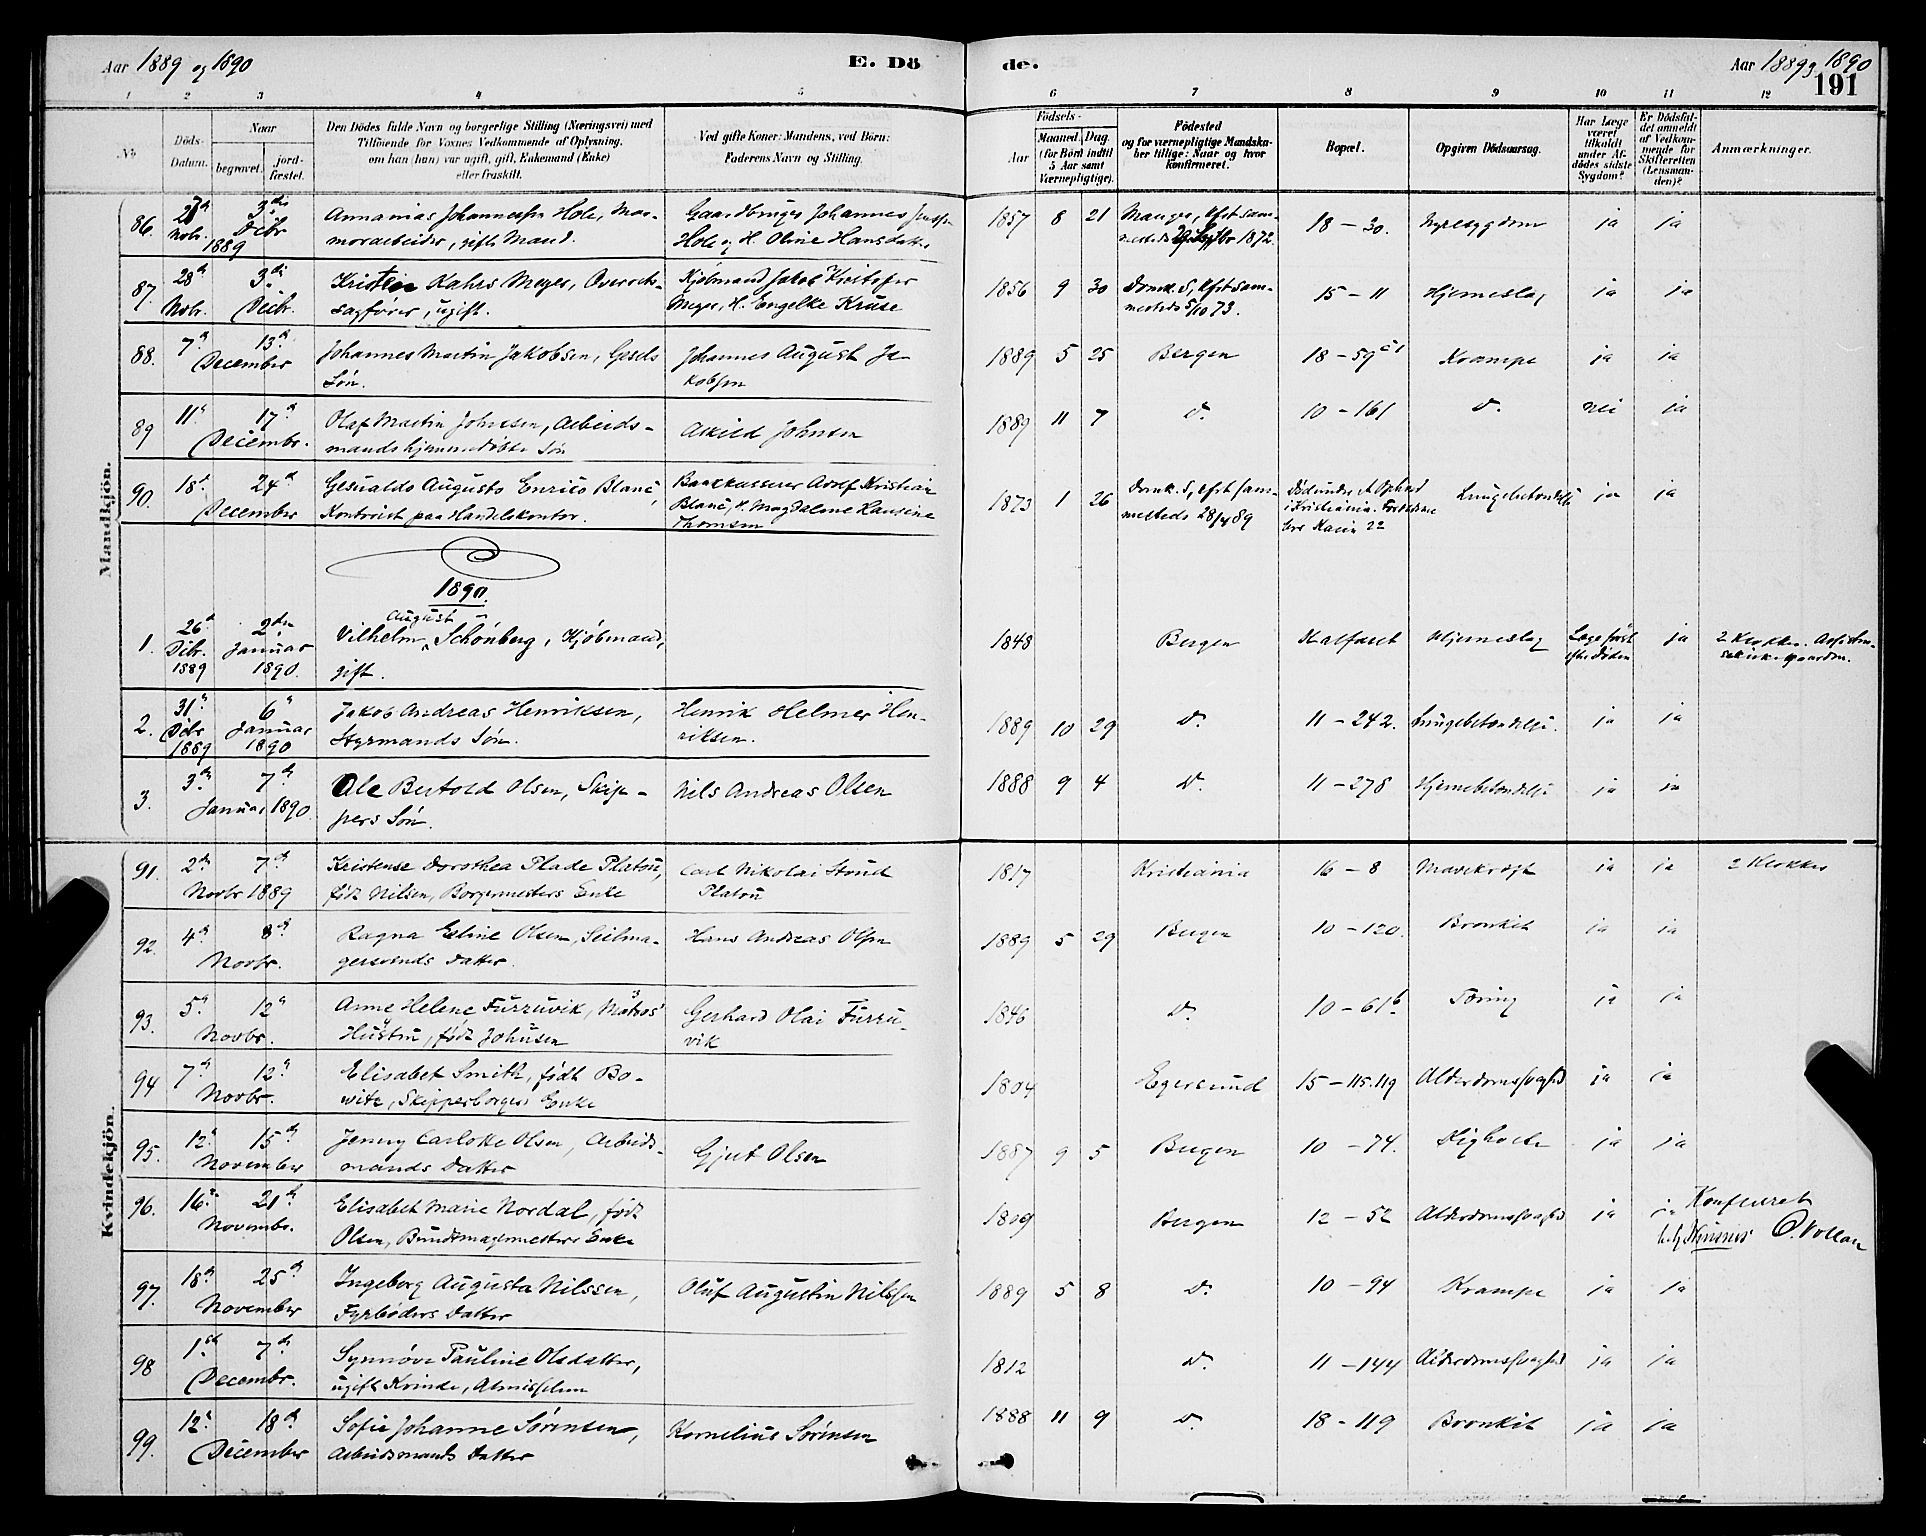 Aar 1889 og 1890
E. Dö
de.
Aar 1889 og 1890
191
1 2 3 4 5 6 7 8 9 10 11 12
No
Döds-Datum.
Naar
begravet.
jordfæstet.
Den Dödes fulde Navn og borgerlige Stilling (Næringsvei) med
Tilföiende for Voxnes Vedkommende af Oplysning,
om han (hun) var ugift, gift, Enkemand (Enke)
eller fraskilt.
Ved gifte Koner: Mandens, ved Börn:
Faderens Navn og Stilling.
Födsels-
Aar
Maaned. Dag.
(for Börn indtil
5 Aar samt
Værnepligtige).
Födested
og for værnepligtige Mandska-
ber tillige: Naar og hvor
konfirmeret.
Bopæl.
Opgiven Dödsaarsag.
Har Læge
været
tilkaldt
under Af-
dödes sidste
Sygdom?
Er Dödsfal-
det anmeldt
af Vedkom-
mende for
Skifteretten
(Lensman-
den)?
Anmærkninger.
Mandkjön.
86. Novbr. 1889 3die Dcbr Annanias Johannessen Hole, Mar-
morarbeider, gift Mand. Gaardbruger Johannes Jenssen
Hole og H. Oline Hansdatter 1857 8 21 Manger, Kfst sam-
mesteds 1872. 18 – 30. Nyresygdom ja ja
87. 28de Novbr. 3die Dcbr. Kristian Kahrs Meyer, Overrets-
sagfører, ugift. Kjøbmand Jakob Kristofer
Meyer, H. Engelke Kruse 1856 9 30 Domk. S, Kfst sam-
mesteds 5/10 73. 15 – 11 Hjerneslag ja ja
88. 7de 13de December Johannes Martin Jakobsen, Gesels
Søn. Johannes August Ja-
kobsen 1889 5 25 Bergen 18 – 59 Krampe ja ja
89 11te 17de Decembr. Olaf Martin Johnsen, Arbeids-
mands hjemmedøbte Søn Askild Johnsen 1889 11 7 do. 10 – 161 do. nei ja
90. 18de 24de December Gesualdo Augusto Enrico Blanc,
Kontorist paa Handelskontor. Bankkasserer Adolf Kristian
Blanc, H. Magdalene Hansine
Thomsen 1873 1 26 Domk. S, Kfst sam-
mesteds 28/4 89 Død under et Ophold
i Kristiania. Lungebetændelse ja ja
1890.
1. 26de Dcbr. 1889 2den Januar 1890. Vilhelm August Schönberg, Kjøbmand,
gift. 1848 Bergen Kalfaret Hjerneslag Læge først
efter Døden ja 2 Klokker. Assisten-
sekirkegaarden.
2. 31te Dcbr 1889 6te Januar 1890 Jakob Andreas Henriksen,
Styrmands Søn. Henrik Helmer Hen-
riksen. 1889 10 29 do. 11 – 242. Lungebetændelse. ja ja
3. 3die 7de Januar 1890. Ole Bertold Olsen, Skip-
pers Søn. Nils Andreas Olsen 1888 9 4 do. 11 – 278 Hjernebetændelse ja ja
Kvindekjön.
91. 2den 7de Novbr 1889 Kristense Dorothea Plade Platou,
født Nilsen, Borgermesters Enke Carl Nikolai Stoud
Platou 1817 Kristiania 16 – 8 Mavekræft ja ja 2 Klokker
92. 4de 8de Novbr. Ragna Eline Olsen, Seilma-
gersvends Datter. Hans Andreas Olsen 1889 5 29 Bergen 10 – 120. Bronkit ja ja
93. 5te 12te Novbr. Anne Helene Furruvik, Matros'
Hustru, født Johnsen Gerhard Olai Furru-
vik 1846 do. 10 – 61b. Tæring ja ja
94 7de 12te Novbr. Elisabet Smith, født Bo-
witz, Skipperborgers Enke 1804 Egersund 15 – 115.119 Alderdomssvaghed ja ja
95. 12te 15de November Jenny Carlotte Olsen, Arbeids-
mands Datter Gjert Olsen 1887 9 5 Bergen 10 – 74. Kighoste ja ja
96. 16de 21de Novembr. Elisabet Marie Nordal, født
Olsen, Bundtmagermesters Enke 1809 Bergen 12 – 52 Alderdomssvaghed ja ja Konfereret
O. Vollan
97. 18de 25de November Ingeborg Augusta Nilssen,
Fyrbøders Datter Oluf Augustin Nilssen 1889 5 8 do. 10 – 94 Krampe ja ja
98 1ste 7de Decembr. Synnøve Pauline Olsdatter,
ugift Kvinde, Almisselem 1812 do. 11 – 144 Alderdomssvaghed ja ja
99. 12te 18de December Sofie Johanne Sørensen,
Arbeidsmands Datter Kornelius Sørensen 1888 11 9 do. 18 – 119 Bronkit ja ja